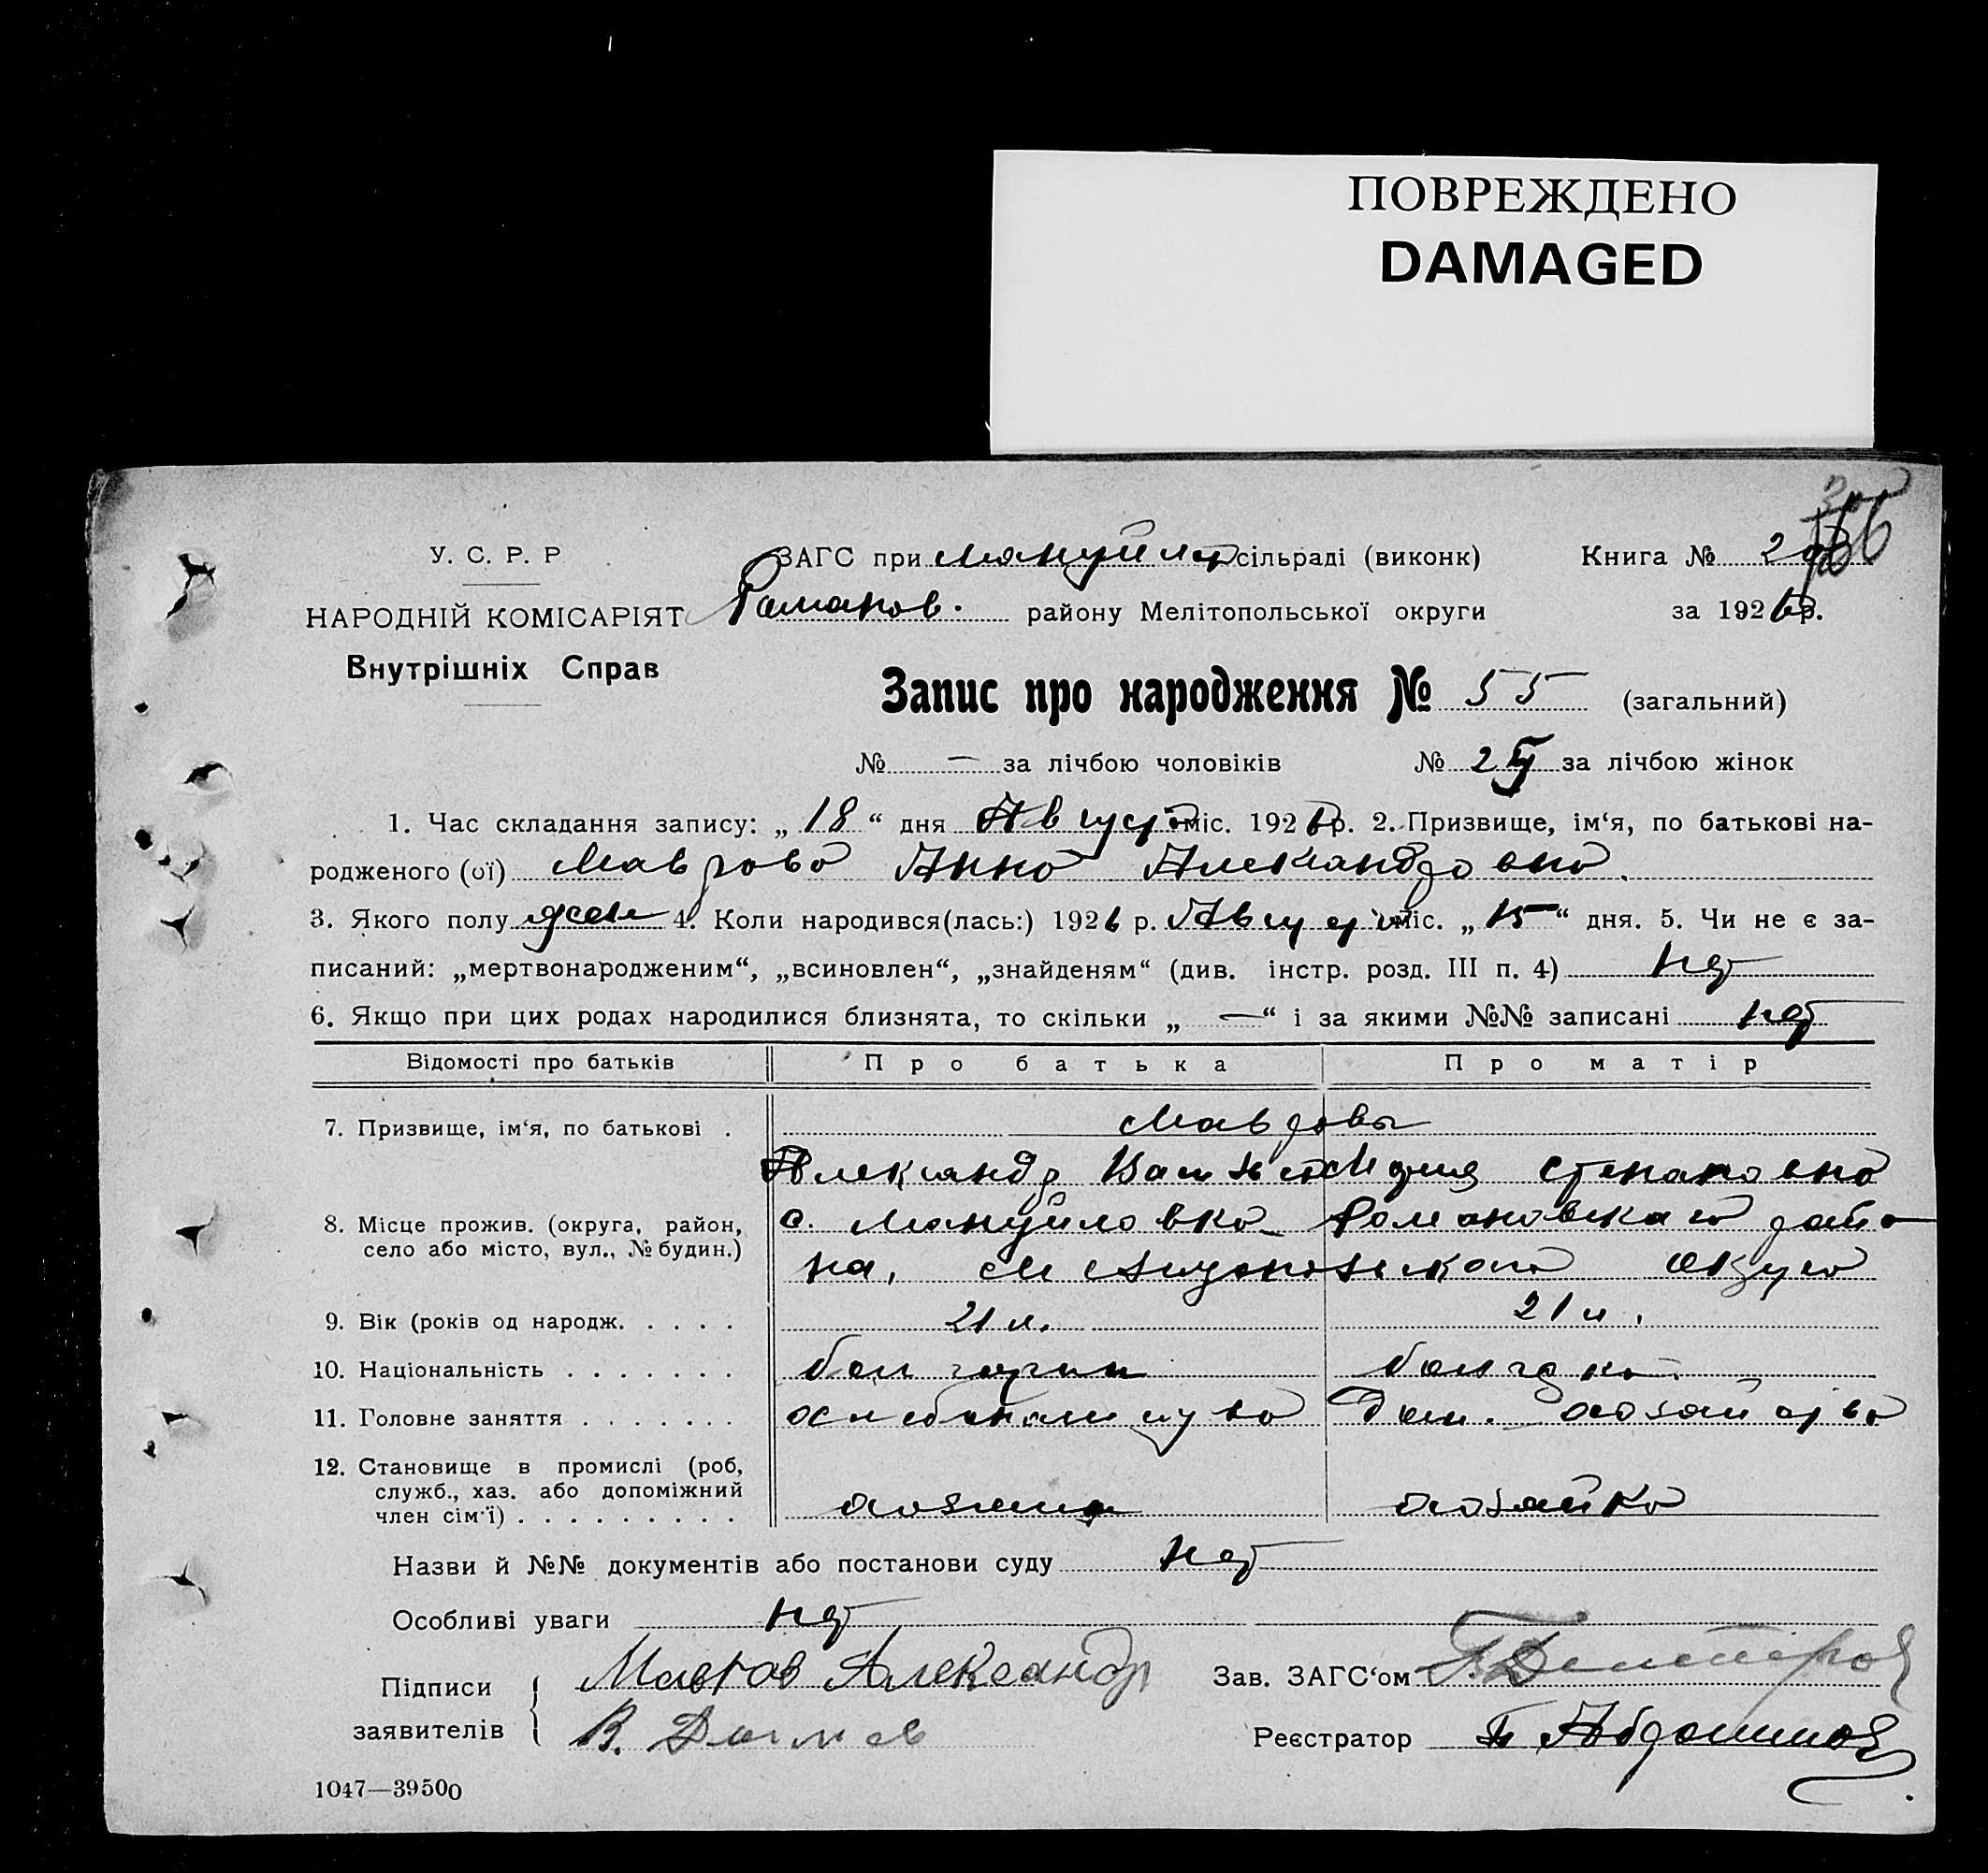 ПОВРЕЖДЕНО
DAMAGED
У. С. Р. Р
ЗАГС при Мануйл сільраді (виконк)
Книга № 2
НАРОДНІЙ КОМІСАРІЯТ
Романов. району Мелітопольської округи
за 1926 р.
Внутрішніх Справ
Запис про народження № 55 (загальний)
№ — за лічбою чоловіків № 2 за лічбою жінок
1. Час складання запису: „ 18 “ дня Август міс. 1926 р. 2. Призвище, ім‘я, по батькові на-
родженого (ої) Маврова Анна Александровна.
3. Якого полу жен 4. Коли народився(лась:) 1926 р. Август міс. „ 15 “ дня. 5. Чи не є за-
писаний: „мертвонародженим“, „всиновлен“, „знайденям“ (див. інстр. розд. III п. 4) нет
6. Якщо при цих родах народилися близнята, то скільки „ — “ і за якими №№ записані нет
Відомості про батьків Про батька Про матір
7. Призвище, ім‘я, по батькові . Мавровы
Александр Степановна
8. Місце прожив. (округа, район, село або місто, вул., № будин.) с. Мануйловка Романовского райо
на, Мелитопольского округа
9. Вік (років од народж. . . . . 21 л. 21 л.
10. Національність . . . . . . . болгарин болгарка
11. Головне заняття . . . . . . . хлебопашество Дом. хозяйство
12. Становище в промислі (роб, служб., хаз. або допоміжний член сім‘ї) . . . . . . . . . хозяин хозяйка
Назви й №№ документів або постанови суду нет
Особливі уваги нет
Підписи заявителів { Мавров Александр
В.
Зав. ЗАГС‘ом
Реєстратор
1047—39500